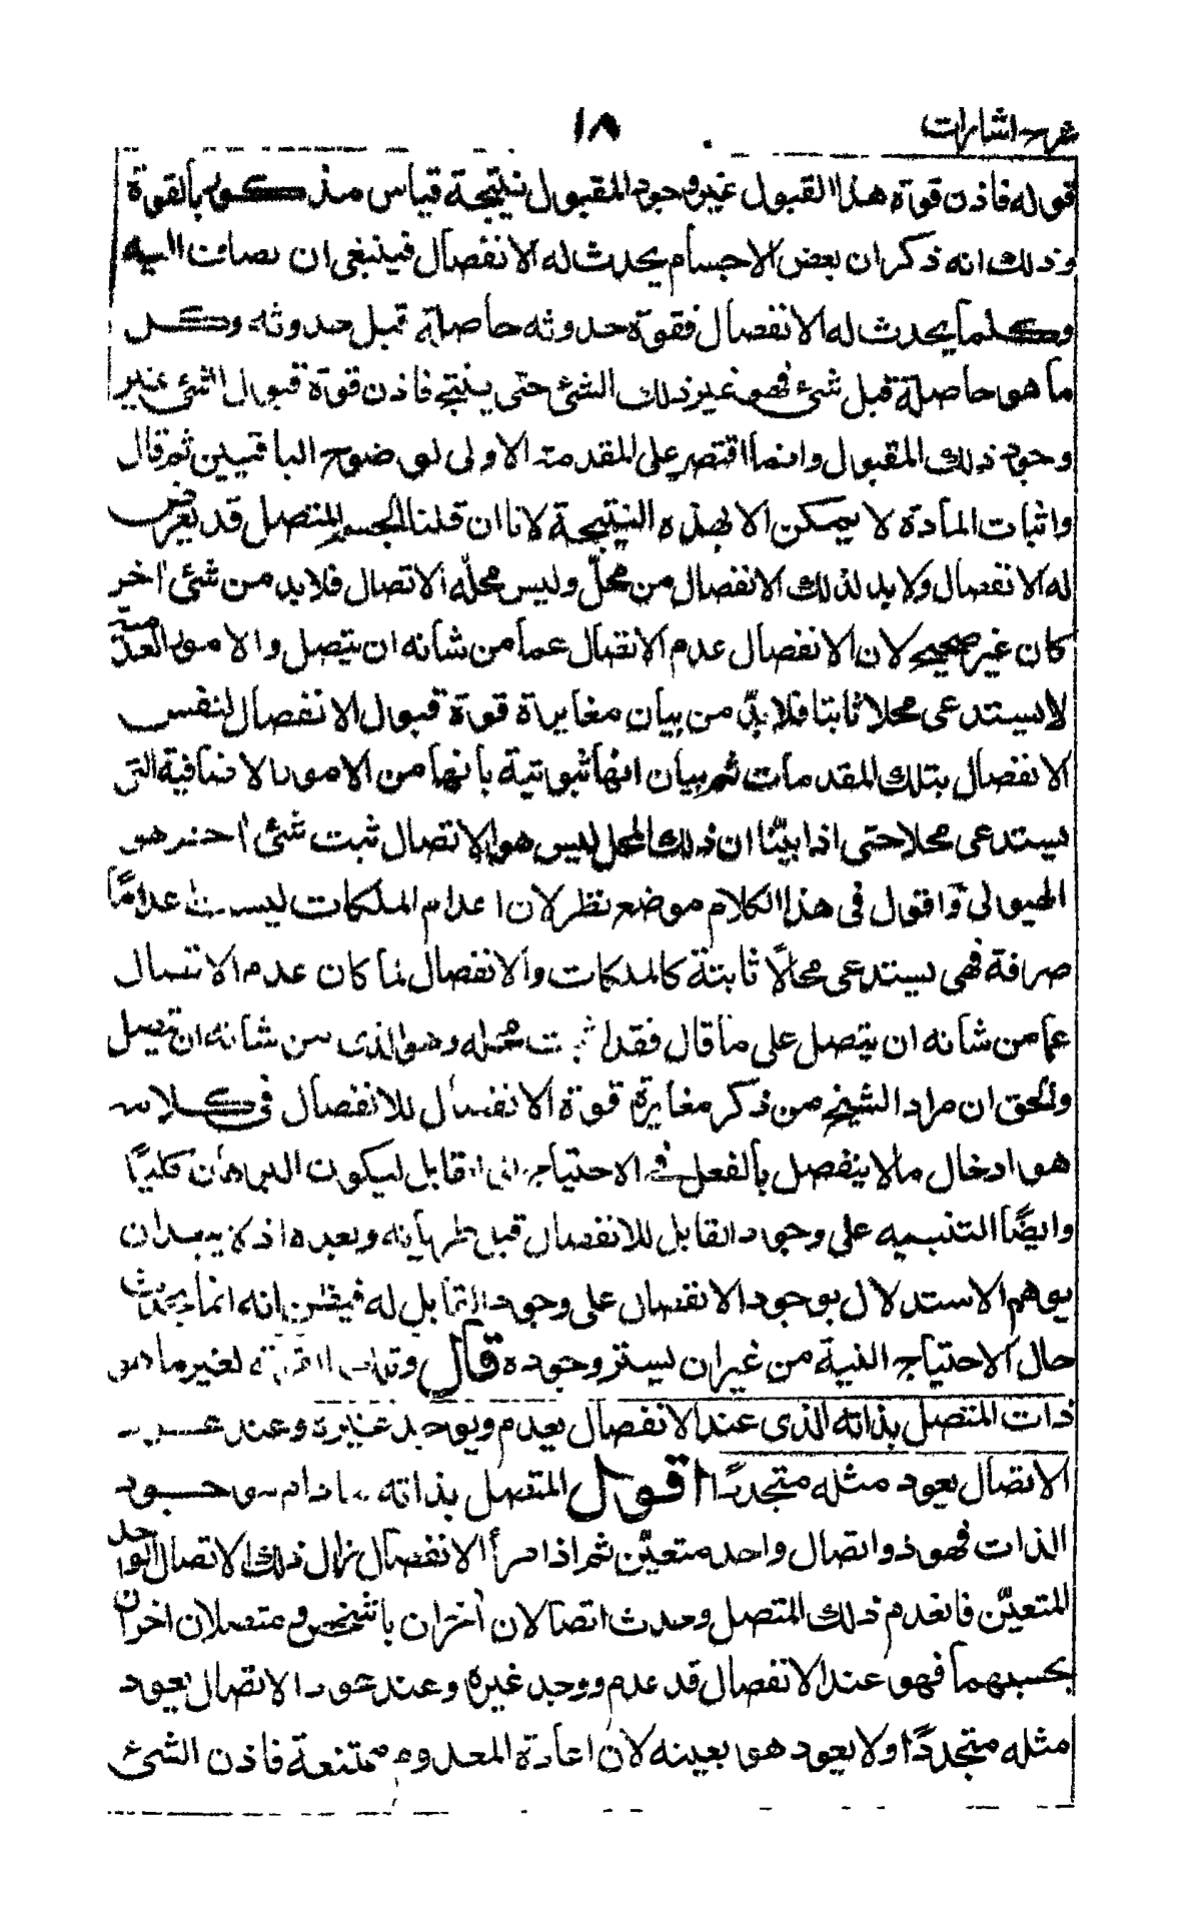 شرح اشارات
١٨
قوله فاذن قوة هذا القبول غير وجود المقبول نتيجة قياس مذكور بالقوة
وذلك انه ذكر ان بعض الاجسام يحدث له الانفصال فينبغى ان يضاف اليه
وكلما يحدث له الانفصال فقوة حدوثه حاصلة قبل حدوثه وكل
ما هو حاصلة قبل شئ فهو غير ذلك الشئ حتى ينتج فاذن قوة قبول الشئ غير
وجود ذلك المقبول وانما اقتصر على المقدمة الاولى لوضوح الباقيين ثم قال
واثبات المادة لا يمكن الا بهذه النتيجة لانا ان قلنا الجسم المتصل قد يعرض
له الانفصال ولابد لذلك الانفصال من محلّ وليس محلّه الاتصال فلابد من شئ اخر
كان غير صحيح لان الانفصال عدم الاتصال عما من شانه ان يتصل والامور العدمية
لا يستدعى محلا ثابتا فلابدّ من بيان مغايرة قوة قبول الانفصال لنفس
الانفصال بتلك المقدمات ثم بيان انها ثبوتية بانها من الامور الاضافية التى
يستدعى محلا حتى اذا بيّنا ان ذلك المحل ليس هو الاتصال ثبت شئ اخر هو
الهيولى واقول فى هذا الكلام موضع نظر لان اعدام الملكات ليست اعدامًا
صرافة فهى يستدعى محالًا ثابتة كالملكات والانفصال لما كان عدم الاتصال
عما من شانه ان يتصل على ما قال فقد اثبت محله وهو الذى من شانه ان يتصل
والحق ان مراد الشيخ من ذكر مغايرة قوة الانفصال للانفصال فى كلامه
هو ادخال ما لا ينفصل بالفعل فى الاحتياج الى القابل ليكون البرهان كليًا
وايضًا التنبيه على وجود القابل للانفصال قبل طريانه وبعده اذ لا يبعد ان
يوهم الاستدلال بوجود الانفصال على وجود القابل له فيظن انه انما يحدث
حال الاحتياج اليه من غير ان يستمر وجوده قال وتلك القوة لغير ما هو
ذات المتصل بذاته الذى عند الانفصال يعدم ويوجد غيره وعند عود
الاتصال يعود مثله متجددًا اقول المتصل بذاته ما دام موجود
الذات فهو ذو اتصال واحد متعيّن ثم اذا طرأ الانفصال زال ذلك الاتصال الواحد
المتعيّن فانعدم ذلك المتصل وحدث اتصالان أخران بالشخص ومتصلان اخران
بحسبهما فهو عند الانفصال قد عدم ووجد غيره وعند عود الاتصال يعود
مثله متجددًا ولا يعود هو بعينه لان اعادة المعدوم ممتنعة فاذن الشئ